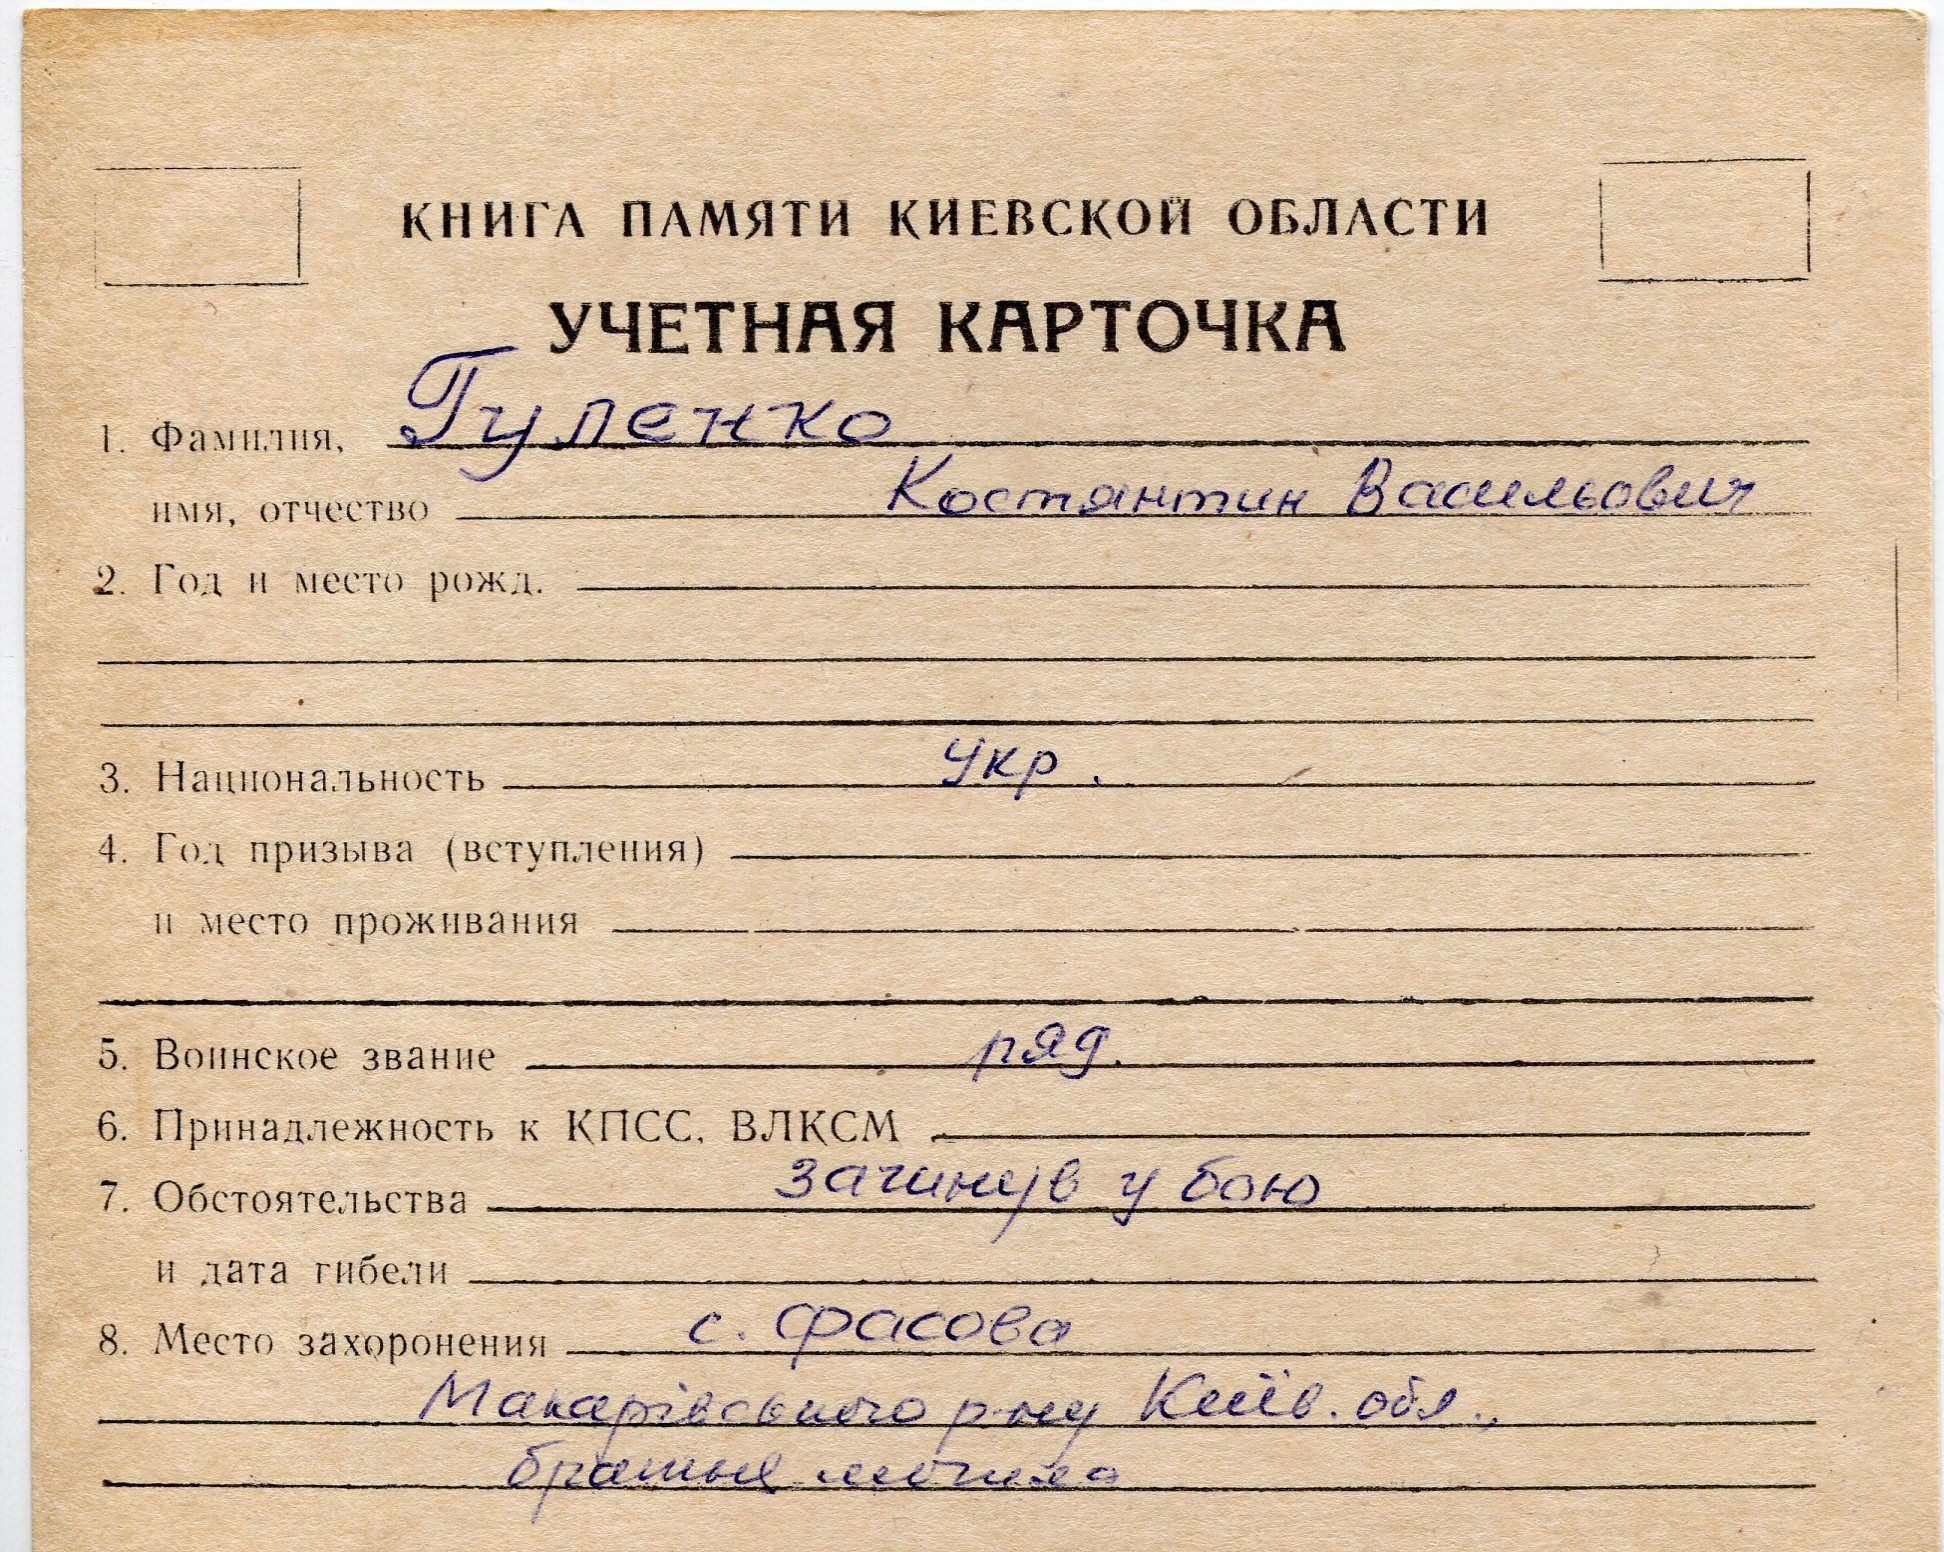 КНИГА ПАМЯТИ КИЕВСКОЙ ОБЛАСТИ
УЧЕТНАЯ КАРТОЧКА
1. Фамилия, Гуленко
имя, отчество Костянтин Васильович
2. Год и место рожд.
3. Национальность Укр.
4. Год призыва (вступления)
и место проживания
5. Воинское звание ряд.
6. Принадлежность к КПСС, ВЛКСМ
7. Обстоятельства загинув у бою
и дата гибели
8. Место захоронения с. Фасова
Макарівського р-ну Київ. обл.,
братня могила